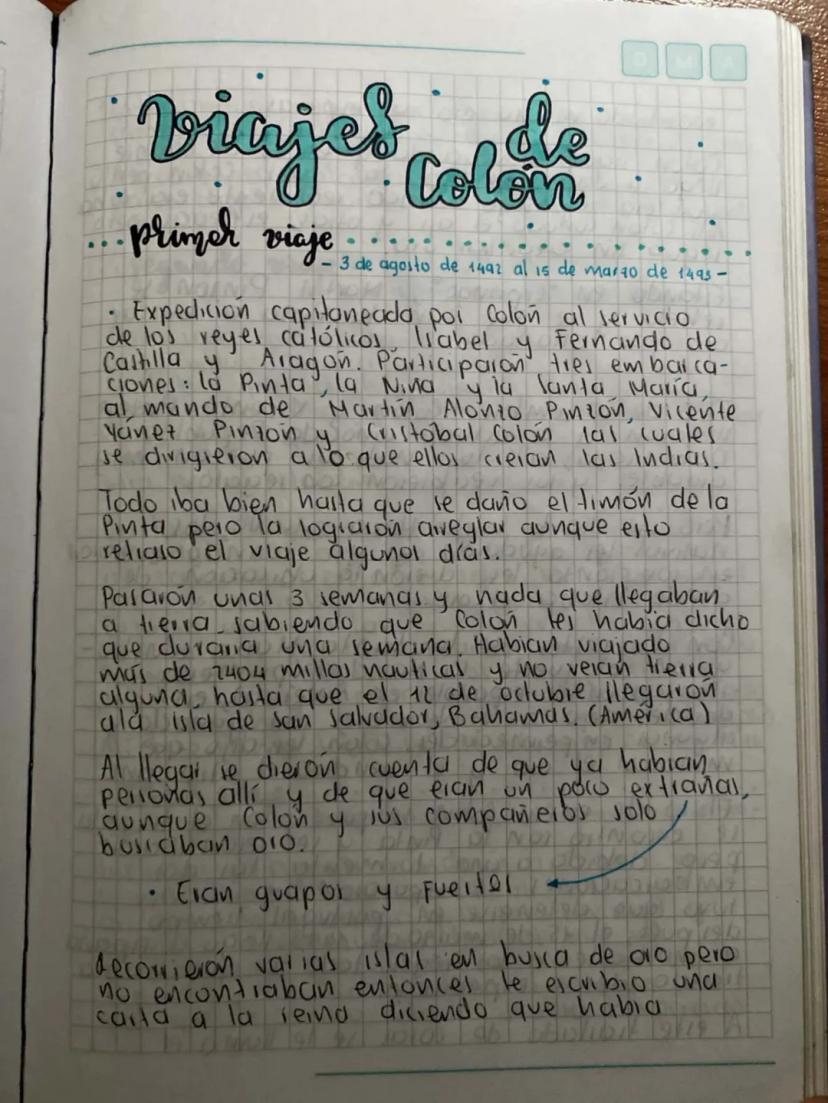 A M D
Viajes de
Colón
...primer viaje
- 3 de agosto de 1492 al 15 de marzo de 1493 -
· Expedición capitaneada por Colón al servicio
de los reyes católicos, Isabel y Fernando de
Castilla y Aragón. Participaron tres embarca-
ciones: la Pinta, la Nina y la Santa María,
al mando de Martín Alonzo Pinzón, Vicente
Yánez Pinzón y Cristobal Colón las cuales
se dirigieron a lo que ellos creian las Indias.
Todo iba bien hasta que se daño el timón de la
Pinta pero la lograron arreglar aunque esto
retraso el viaje algunos días.
Pasaron unas 3 semanas y nada que llegaban
a tierra sabiendo que Colón les había dicho
que duraria una semana. Habian viajado
más de 2404 millas nauticas y no veían tierra
alguna, hasta que el 12 de octubre llegaron
a la isla de San Salvador, Bahamas. (América)
Al llegar se dieron cuenta de que ya habian
personas allí y de que eran un poco extrañas,
aunque Colón y sus compañeros solo
buscaban oro.
· Eran guapos y Fuertes
Recorrieron varias islas en busca de oro pero
no encontraban entonces le escribio una
carta a la reina diciendo que habia